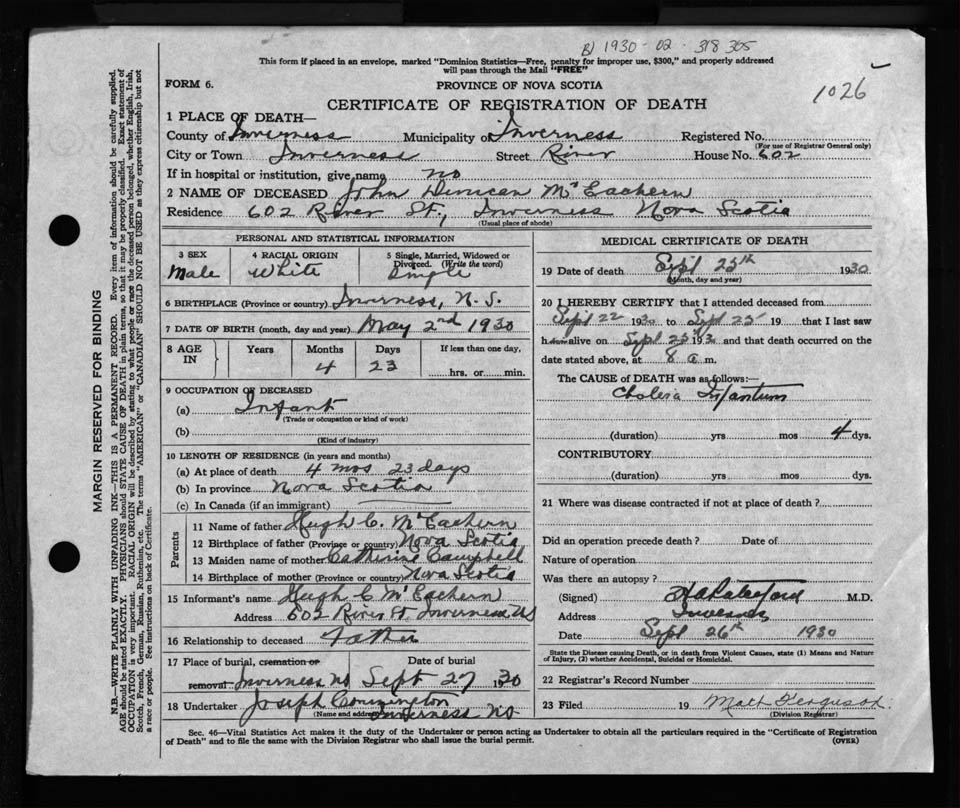 B) 1930-02-318 305
This form if placed in an envelope, marked "Dominion Statistics—Free, penalty for improper use, $300," and properly addressed
will pass through the Mail "FREE"
1026
FORM 6.
PROVINCE OF NOVA SCOTIA
CERTIFICATE OF REGISTRATION OF DEATH
1 PLACE OF DEATH—
County of Inverness Municipality of Inverness Registered No.
(For use of Registrar General only)
City or Town Inverness Street River House No. 602
If in hospital or institution, give name no
2 NAME OF DECEASED John Duncan McEachern
Residence 602 River St., Inverness Nova Scotia
(Usual place of abode)
PERSONAL AND STATISTICAL INFORMATION
3 SEX 4 RACIAL ORIGIN 5 Single, Married, Widowed or
Divorced. (Write the word)
Male White Single
6 BIRTHPLACE (Province or country) Inverness, N.S.
7 DATE OF BIRTH (month, day and year) May 2nd 1930
8 AGE IN Years Months Days If less than one day,
4 23 hrs. or min.
9 OCCUPATION OF DECEASED
(a) Infant
(Trade or occupation or kind of work)
(b)
(Kind of industry)
10 LENGTH OF RESIDENCE (in years and months)
(a) At place of death 4 mos 23 days
(b) In province Nova Scotia
(c) In Canada (if an immigrant)
Parents
11 Name of father Hugh C. McEachern
12 Birthplace of father (Province or country) Nova Scotia
13 Maiden name of mother Catherine Campbell
14 Birthplace of mother (Province or country) Nova Scotia
15 Informant's name Hugh C McEachern
Address 602 River St. Inverness NS
16 Relationship to deceased Father
17 Place of burial, cremation or Date of burial
removal Inverness NS Sept 27 1930
18 Undertaker Joseph
(Name and address) Inverness NS
MEDICAL CERTIFICATE OF DEATH
19 Date of death Sept 25th 1930
(Month, day and year)
20 I HEREBY CERTIFY that I attended deceased from
Sept 22 1930 to Sept 25 19 that I last saw
h alive on Sept 25 1930 and that death occurred on the
date stated above, at 8 a m.
The CAUSE of DEATH was as follows:—
Cholera Infantum
(duration) yrs mos 4 dys.
CONTRIBUTORY
(duration) yrs mos dys.
21 Where was disease contracted if not at place of death?
Did an operation precede death? Date of
Nature of operation
Was there an autopsy?
(Signed) M.D.
Address Inverness
Date Sept 26th 1930
State the Disease causing Death, or in death from Violent Causes, state (1) Means and Nature
of Injury, (2) whether Accidental, Suicidal or Homicidal.
22 Registrar's Record Number
23 Filed 19 Matt Ferguson
(Division Registrar)
Sec. 46—Vital Statistics Act makes it the duty of the Undertaker or person acting as Undertaker to obtain all the particulars required in the "Certificate of Registration
of Death" and to file the same with the Division Registrar who shall issue the burial permit. (OVER)
MARGIN RESERVED FOR BINDING
N.B.—WRITE PLAINLY WITH UNFADING INK—THIS IS A PERMANENT RECORD. Every item of information should be carefully supplied.
AGE should be stated EXACTLY. PHYSICIANS should STATE CAUSE OF DEATH in plain terms, so that it may be properly classified. Exact statement of
OCCUPATION is very important. RACIAL ORIGIN will be described by stating to what people or race the deceased person belonged, whether English, Irish,
Scotch, French, German, Russian, Ruthenian, etc. The terms "AMERICAN" or "CANADIAN" SHOULD NOT BE USED as they express citizenship but not
a race or people. See instructions on back of Certificate.